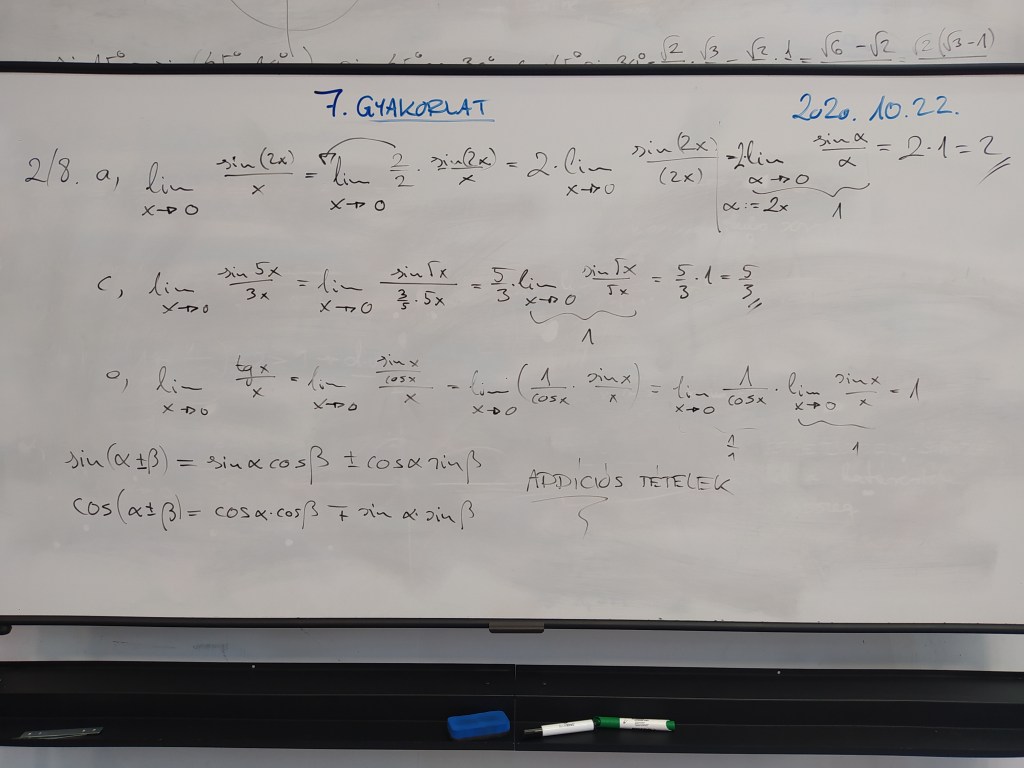 √2/2 · √3/2 - √2/2 · 1/2 = √6 - √2 = √2(√3-1)
7. GYAKORLAT 2020. 10.22.
2/8. a, lim x→0 sin(2x)/x = lim x→0 2/2 · sin(2x)/x = 2 · lim x→0 sin(2x)/(2x) = 2 lim α→0 sin α/α = 2·1 = 2
α := 2x 1
c, lim x→0 sin 5x/3x = lim x→0 sin 5x/(3/5 · 5x) = 5/3 · lim x→0 sin 5x/5x = 5/3 · 1 = 5/3
1
o, lim x→0 tg x/x = lim x→0 (sin x/cos x)/x = lim x→0 (1/cos x · sin x/x) = lim x→0 1/cos x · lim x→0 sin x/x = 1
1/1 1
sin(α ± β) = sin α cos β ± cos α sin β
ADDÍCIÓS TÉTELEK
cos(α ± β) = cos α · cos β ∓ sin α · sin β